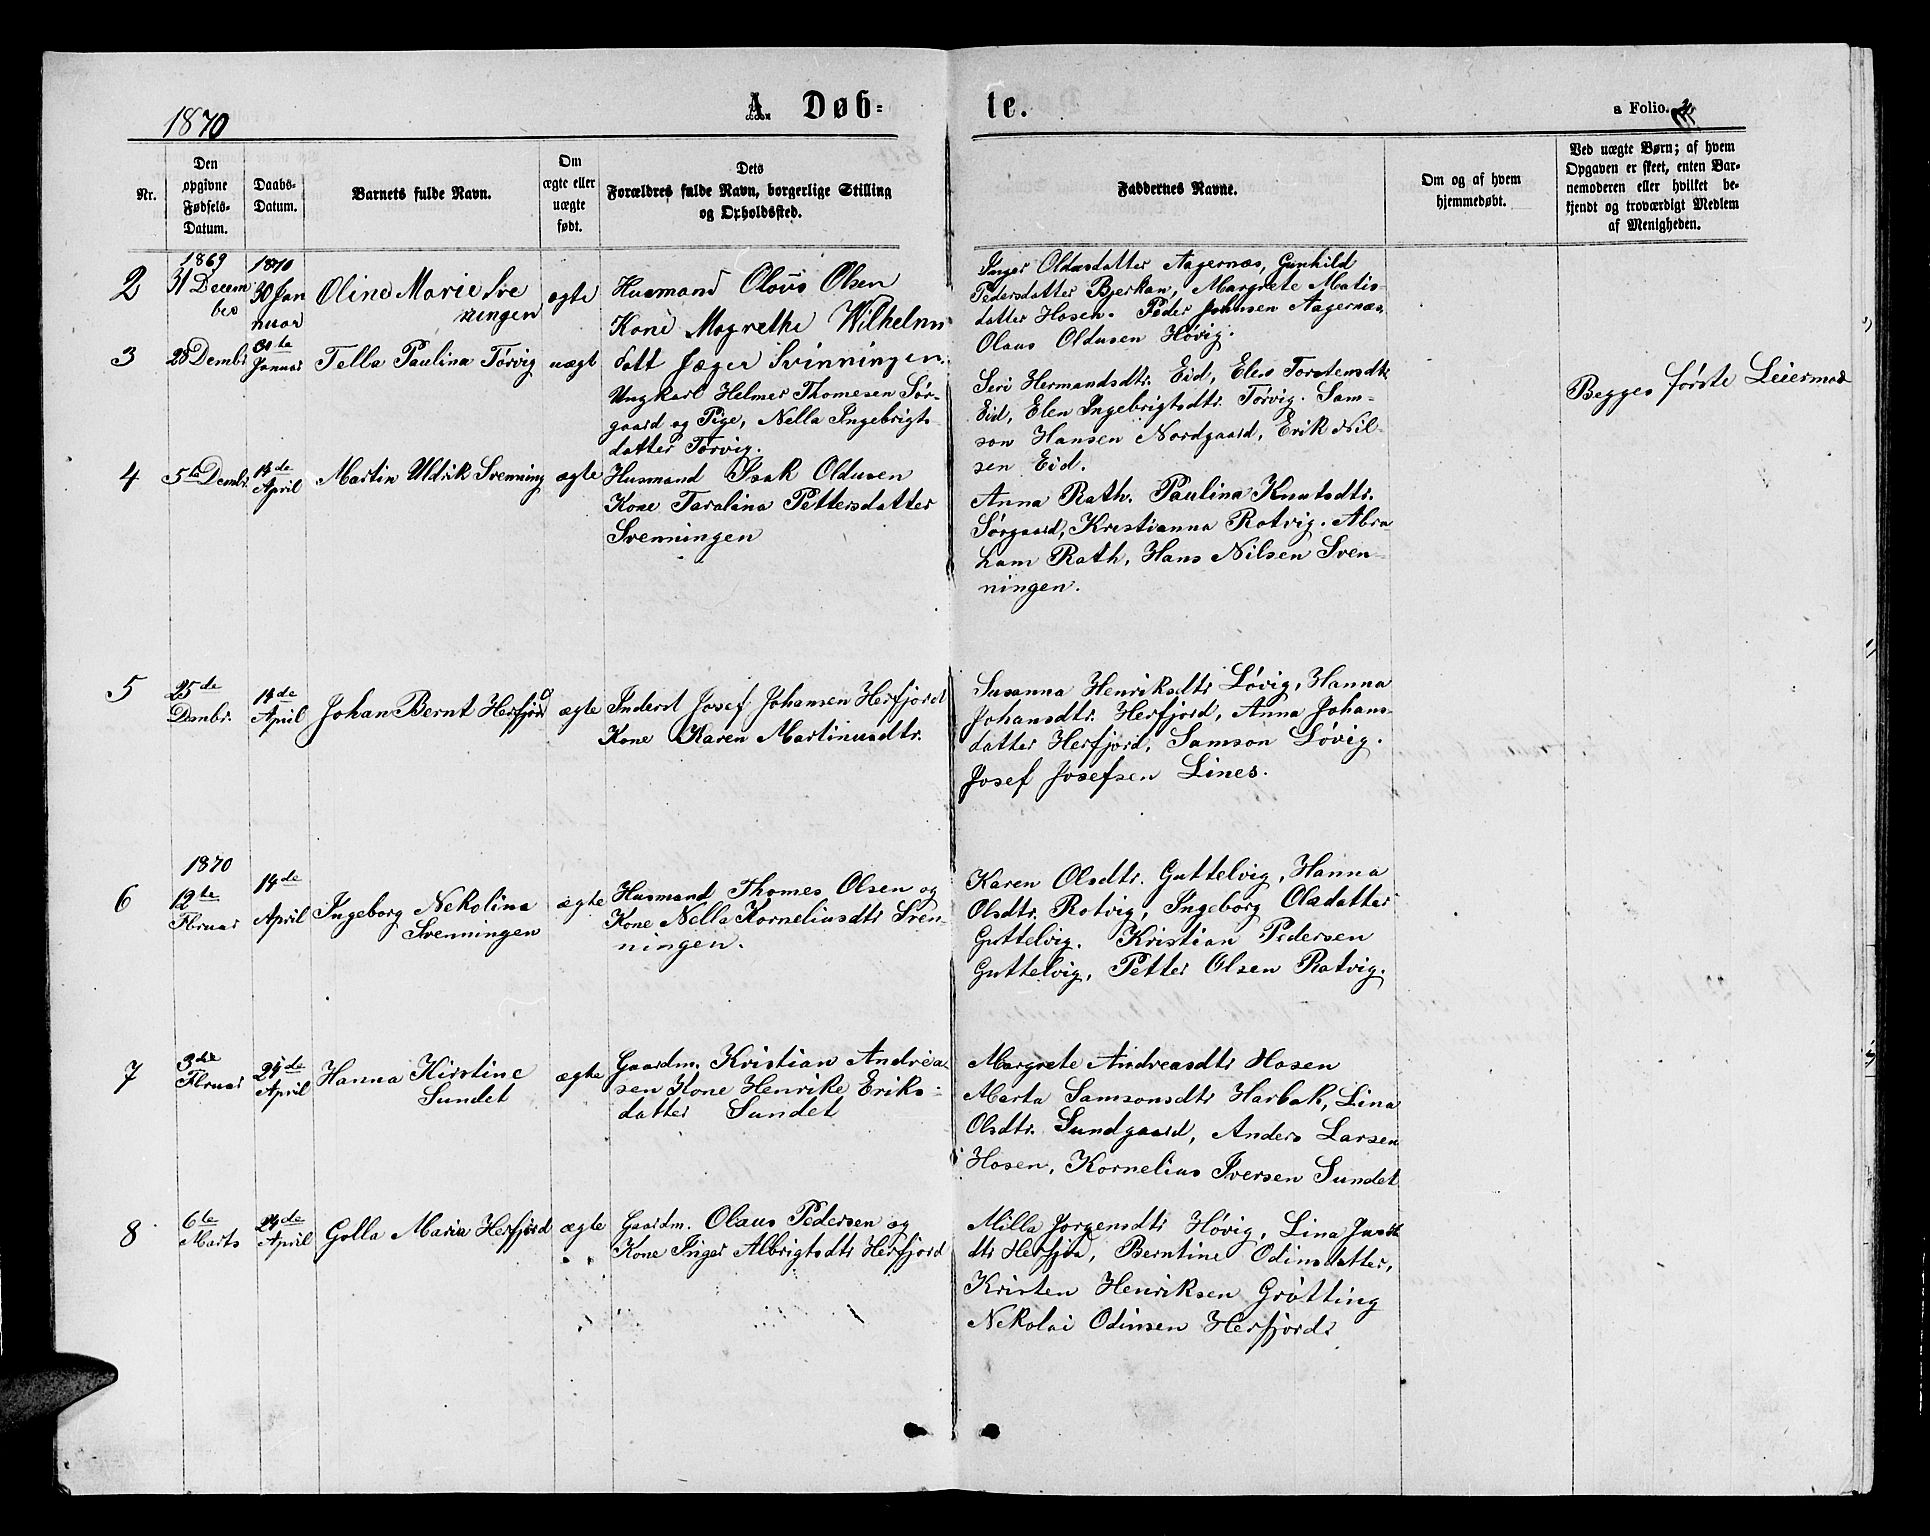 1870
A. Døb-
te.
a Folio.
Nr.
Den opgivne Fødsels-Datum.
Daabs-Datum.
Barnets fulde Navn.
Om ægte eller uægte født.
Dets Forældres fulde Navn, borgerlige Stilling og Opholdssted.
Faddernes Navne.
Om og af hvem hjemmedøbt.
Ved uægte Børn; af hvem Opgaven er skeet, enten Barnemoderen eller hvilket bekjendt og troværdigt Medlem af Menigheden.
2
1869
31 Decem
ber
1870
30 Jan
nuar
Oline Marie Sve
ningen
ægte
Husmand Olaus Olsen
Kone Magrethe Wilhelms
datt Jæger Svinningen.
Inger Oldusdatter Aagernæs, Gunhild
Pedersdatter Bjerkan, Margrete Matis-
datter Hosen. Peder Johnsen Aagernæs,
Olaus Oldusen Høvig.
3
28 Dembr.
31te
Januar
Tella Paulina Tørvig
uægt
Ungkarl Helmer Thomesen Sør-
gaard og Pige, Nella Ingebrigts-
datter Tørvig.
Seri Hermandsdtr. Eid, Elen Torstensdtr
Eid, Elen Ingebrigtsdtr. Tørvig. Sam-
son Hansen Nordgaard, Erik Nil-
sen Eid.
Begges første Leiermaal
4
5te Dembr.
14de
April
Martin Uldrik Svenning
ægte
Husmand Isak Oldusen
Kone Taralina Pettersdatter
Svenningen
Anna Rath. Paulina Knutsdtr.
Sørgaard, Kristianna Ratvig. Abra
ham Rath, Hans Nilsen Sven-
ningen.
5
25de
Dembr.
14de
April
Johan Bernt Herfjord
ægte
Inderst Josef Johansen Herfjord
Kone Karen Martinusdtr.
Susanna Henriksdtr Løvig, Hanna
Johansdtr. Herfjord, Anna Johans-
datter Herfjord, Samson Løvig.
Josef Josefsen Lines.
6
1870
12te
Fbruar
14de
April
Ingeborg Nekolina
Svenningen
ægte
Husmand Thomes Olsen og
Kone Nella Korneliusdtr Sven-
ningen.
Karen Olsdtr. Guttelvig, Hanna
Olsdtr. Rotvig, Ingeborg Olsdatter
Guttelvig. Kristian Pedersen
Guttelvig, Petter Olsen Ratvig.
7
3die
Fbruar
24de
April
Hanna Kirstine
Sundet
ægte
Gaardm. Kristian Andrea-
sen Kone Henrike Eriks-
datter Sundet
Margrete Andreasdtr Hosen
Marta Samsonsdtr Harbak, Lina
Olsdtr. Sundgaard, Anders Larsen
Hosen, Kornelius Iversen Sundet
8
6te
Marts
24de
April
Golla Maria Herfjord
ægte
Gaardm. Olaus Pedersen og
Kone Inger Albrigtsdtr Herfjord
Milla Jørgensdtr Høvig, Lina
dtr Herfjord, Berntine Odinsdatter,
Kristen Henriksen Grøtting
Nekolai Odinsen Herfjord.